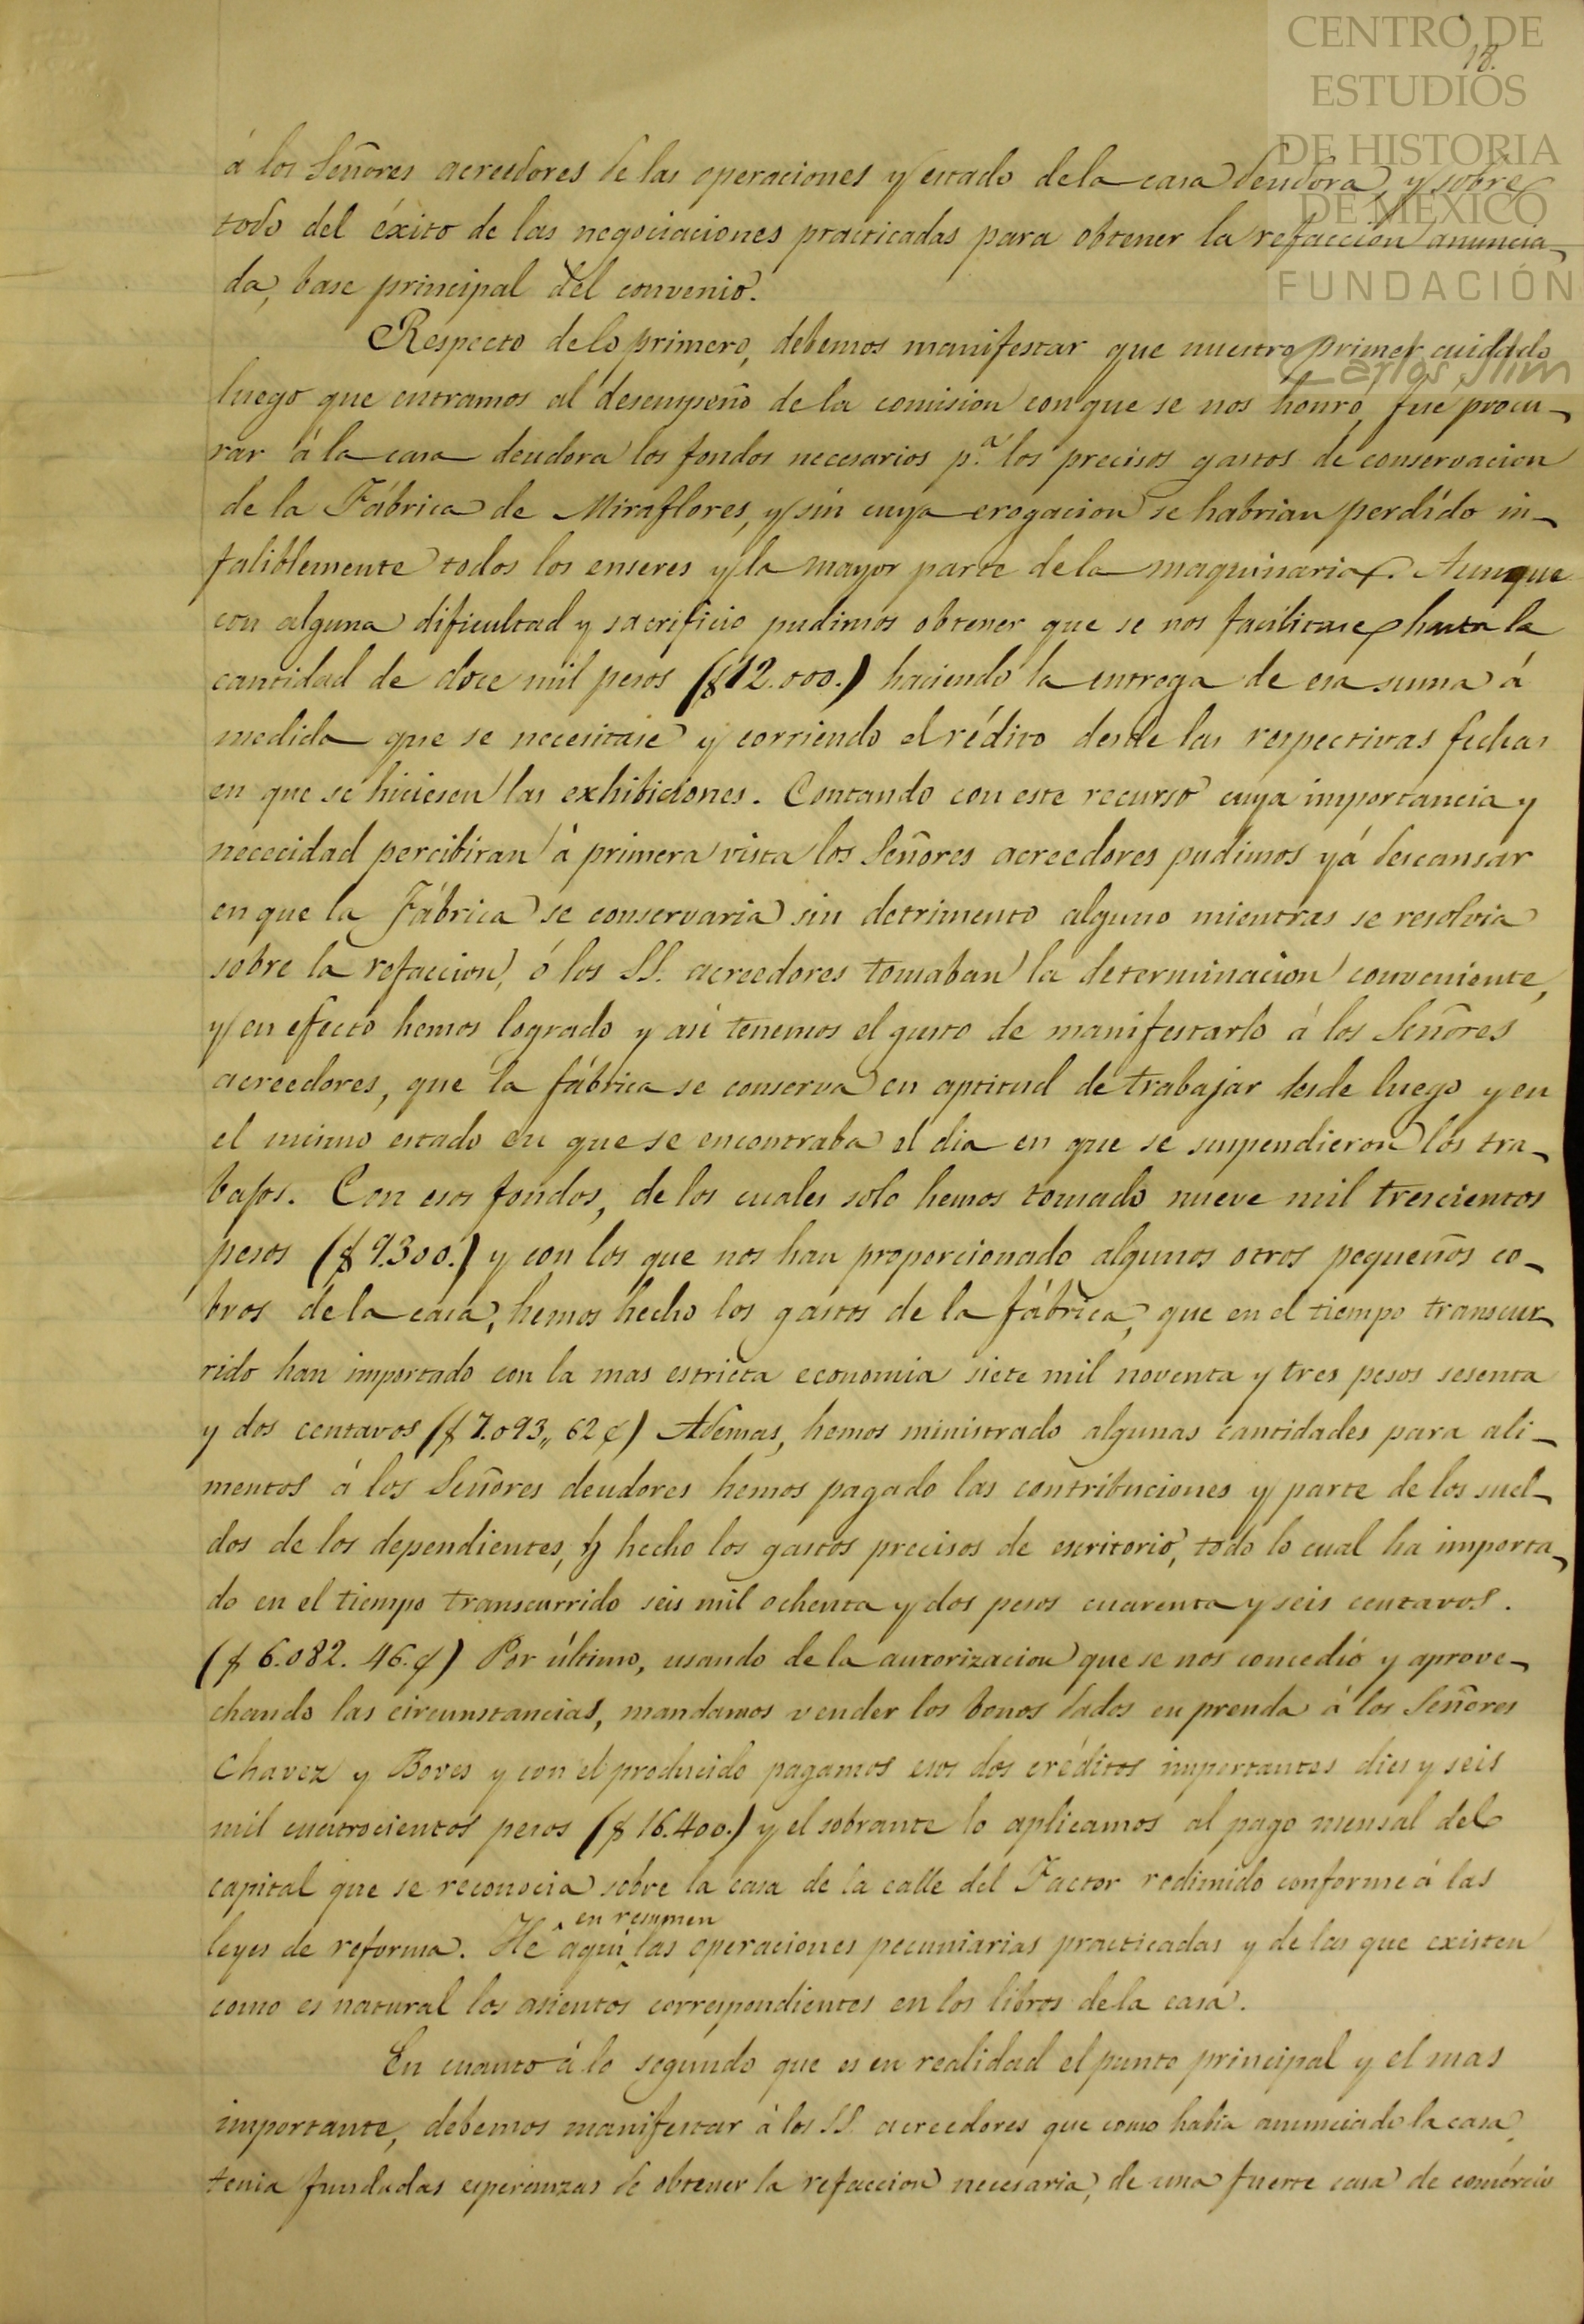 CENTRO DE
18.
ESTUDIOS
DE HISTORIA
DE MÉXICO
FUNDACIÓN
Carlos Slim
á los Señores acreedores de las operaciones y estado de la casa deudora, y sobre
todo del éxito de las negociaciones practicadas para obtener la refaccion anuncia-
da, base principal del convenio.
Respecto de lo primero, debemos manifestar que nuestro primer cuidado
luego que entramos al desempeño de la comision con que se nos honró, fué procu-
rar á la casa deudora los fondos necesarios p.ª los precisos gastos de conservacion
de la Fábrica de Miraflores, y sin cuya erogacion se habrian perdido in-
faliblemente todos los enseres y la mayor parte de la maquinaria. Aunque
con alguna dificultad y sacrificio pudimos obtener que se nos facilitase hasta la
cantidad de doce mil pesos ($12.000.) haciendo la entrega de esa suma á
medida que se necesitase y corriendo el rédito desde las respectivas fechas
en que se hiciesen las exhibiciones. Contando con este recurso cuya importancia y
nececidad percibiran á primera vista los Señores acreedores pudimos yá descansar
en que la Fábrica se conservaria sin detrimento alguno mientras se resolvia
sobre la refaccion, ó los SS. acreedores tomaban la determinacion conveniente,
y en efecto hemos logrado y asi tenemos el gusto de manifestarlo á los Señores
acreedores, que la fábrica se conserva en aptitud de trabajar desde luego y en
el mismo estado en que se encontraba el dia en que se suspendieron los tra-
bajos. Con esos fondos, de los cuales solo hemos tomado nueve mil trescientos
pesos ($ 9.300.) y con los que nos han proporcionado algunos otros pequeños co-
bros de la casa, hemos hecho los gastos de la fábrica, que en el tiempo transcur-
rido han importado con la mas estricta economia siete mil noventa y tres pesos sesenta
y dos centavos ($ 7.093,, 62 ¢) Ademas, hemos ministrado algunas cantidades para ali-
mentos á los Señores deudores hemos pagado las contribuciones y parte de los suel-
dos de los dependientes, y hecho los gastos precisos de escritorio, todo lo cual ha importa-
do en el tiempo transcurrido seis mil ochenta y dos pesos cuarenta y seis centavos.
($ 6.082. 46.¢) Por último, usando de la autorizacion que se nos concedió y aprove-
chando las circunstancias, mandamos vender los bonos dados en prenda á los Señores
Chavez y Boves y con el producido pagamos esos dos créditos importantes dies y seis
mil cuatrocientos pesos ($ 16.400.) y el sobrante lo aplicamos al pago mensal del
capital que se reconocia sobre la casa de la calle del Factor redimido conforme á las
en resumen
leyes de reforma. He aquí las operaciones pecuniarias practicadas y de las que existen
como es natural los asientos correspondientes en los libros de la casa.
En cuanto á lo segundo que es en realidad el punto principal y el mas
importante, debemos manifestar á los SS. acreedores que como habia anunciado la casa,
tenia fundadas esperanzas de obtener la refaccion necesaria, de una fuerte casa de comércio